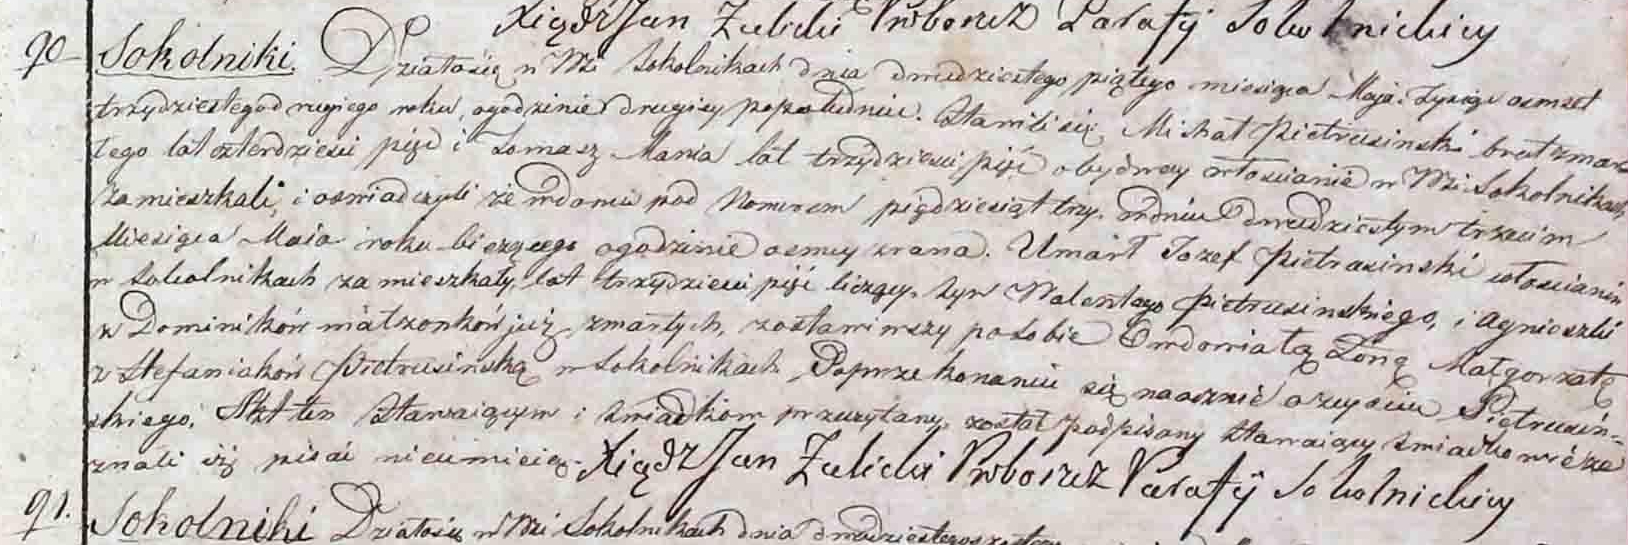 Xiądz Jan Zulicki Proboszcz Parafÿ Sokolnickiey
90 Sokolniki. Działosię w Wsi Sokolnikach dnia dwudziestego piątego miesiąca Maja. Tysiąc osmset
trzydziestego drugiego roku, ogodzinie drugiey popołudniu. Stawili się, Michał Pietrusinski brat zmar
łego lat czterdziesci pięć i Tomasz Mania lat trzydziesci pięć obydway włoscianie w Wsi Sokolnikach
zamieszkali, i oswiadczyli że wdomu pod Numerem pięcdziesiąt trzy. wdniu dwudziestym trzecim
Miesiąca Maia roku bieżącego ogodzinie osmey zrana. Umarł Jozef Pietrusinski włoscianin
w Sokolnikach zamieszkały, lat trzydziesci pięć liczący, syn Walentego Pietrusinskiego, i Agnieszki
z Dominikow małzonkow już zmarłych, zostawiwszy posobie Owdowiałą Zonę Małgorzatę
z Stefaniakow Pietrusinską w Sokolnikach Poprzekonaniu się naocznie ozeysciu Pietrusin=
skiego. Akt ten Stawaiącym i Swiadkom przeczytany, został podpisany Stawaiący Swiadkowie ze
znali iż pisać nieumieią. Xiądz Jan Zulicki Proboszcz Parafÿ Sokolnickiey
91. Sokolniki Działosię w Wsi Sokolnikach dnia dwudziestego